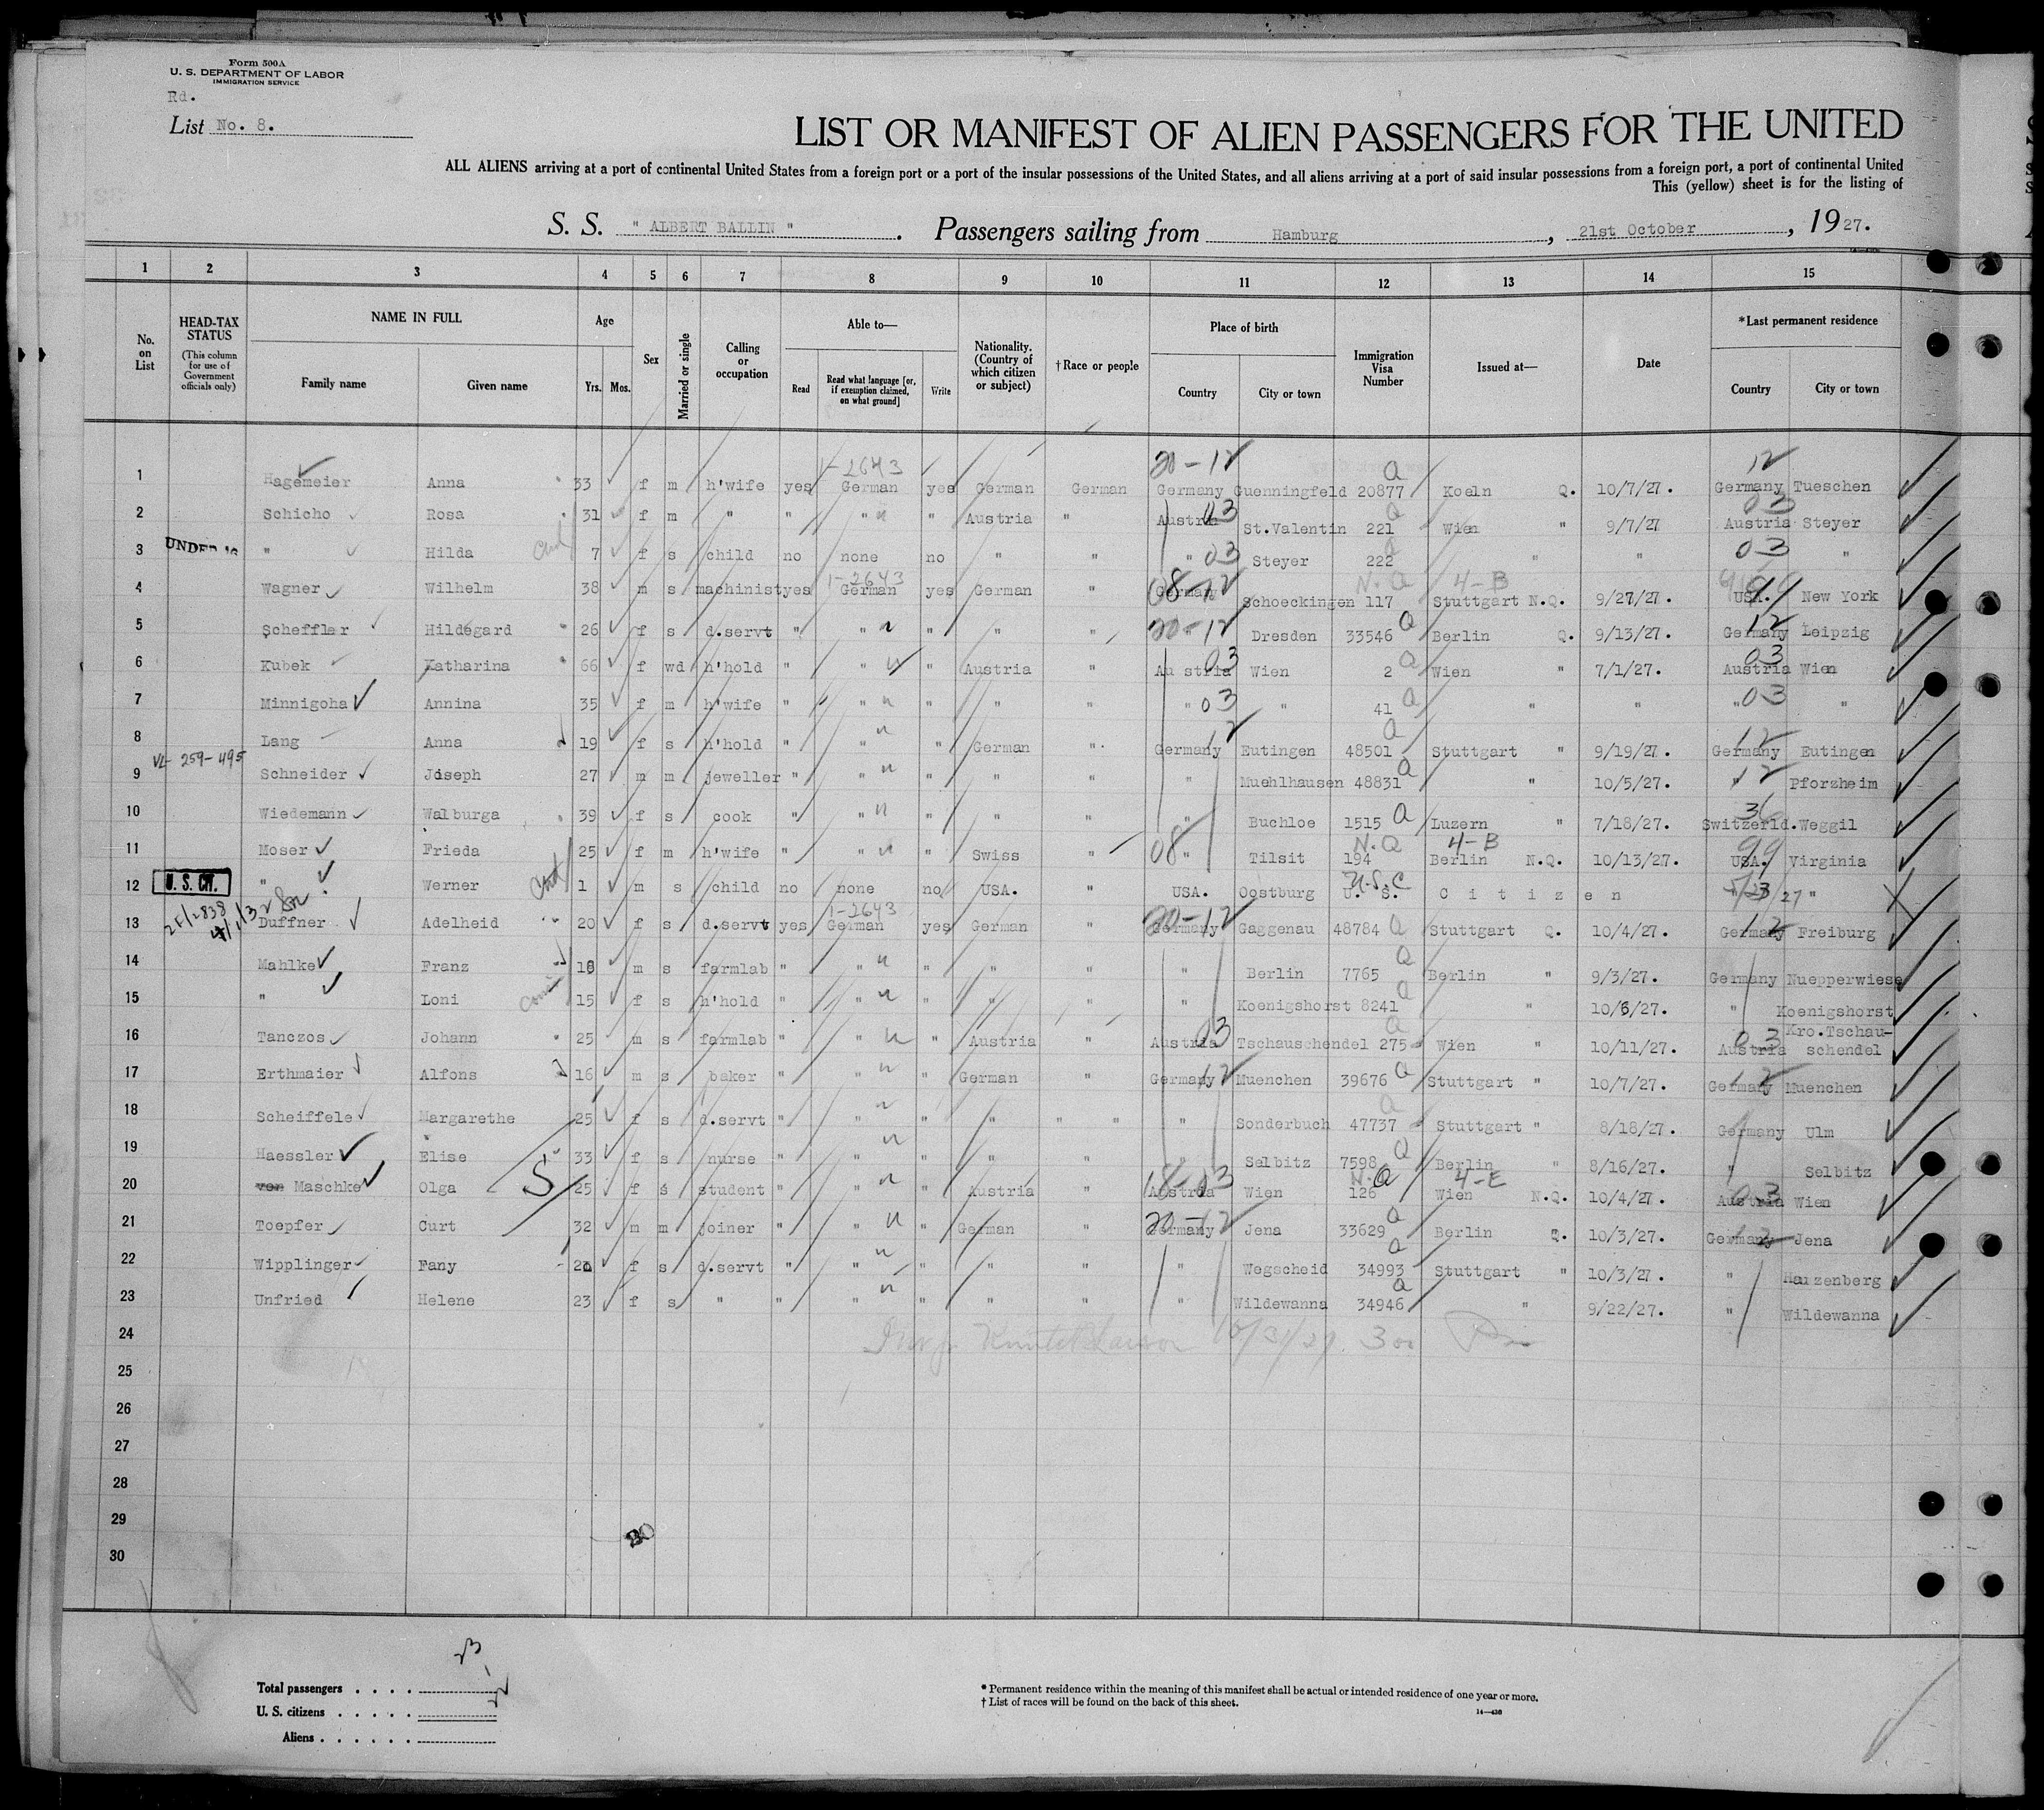 Form 500A
U. S. DEPARTMENT OF LABOR
IMMIGRATION SERVICE
Rd.
List No. 8.
LIST OR MANIFEST OF ALIEN PASSENGERS FOR THE UNITED
ALL ALIENS arriving at a port of continental United States from a foreign port or a port of the insular possessions of the United States, and all aliens arriving at a port of said insular possessions from a foreign port, a port of continental United
This (yellow) sheet is for the listing of
S. S. " ALBERT BALLIN " . Passengers sailing from Hamburg , 21st October , 1927.
1 2 3 4 5 6 7 8 9 10 11 12 13 14 15
No. on List
HEAD-TAX STATUS
(This column for use of Government officials only)
NAME IN FULL
Family name
Given name
Age
Yrs. Mos.
Sex
Married or single
Calling or occupation
Able to—
Read
Read what language [or, if exemption claimed, on what ground]
Write
Nationality. (Country of which citizen or subject)
†Race or people
Place of birth
Country
City or town
Immigration Visa Number
Issued at—
Date
*Last permanent residence
Country
City or town
1-2643 20-12 a 12
1 Hagemeier Anna 33 f m h'wife yes German yes German German Germany Guenningfeld 20877 Koeln Q. 10/7/27. Germany Tueschen
03 a 03
2 Schicho Rosa 31 f m " " " " Austria " Austria St.Valentin 221 Wien " 9/7/27 Austria Steyer
03 a 03
3 UNDER 16 " Hilda 7 f s child no none no " " " Steyer 222 " " " "
1-2643 08-12 N.a 4-B 99
4 Wagner Wilhelm 38 m s machinist yes German yes German " Germany Schoeckingen 117 Stuttgart N.Q. 9/27/27. USA. New York
20-12 a 12
5 Scheffler Hildegard 26 f s d.servt " " " " " Dresden 33546 Berlin Q. 9/13/27. Germany Leipzig
03 a 03
6 Kubek Katharina 66 f wd h'hold " " " Austria " Au stria Wien 2 Wien " 7/1/27. Austria Wien
03 a 03
7 Minnigoha Annina 35 f m h'wife " " " " " " " 41 " " " "
12 a 12
8 Lang Anna 19 f s h'hold " " " German " Germany Eutingen 48501 Stuttgart " 9/19/27. Germany Eutingen
VL 259-495 a 12
9 Schneider Joseph 27 m m jeweller " " " " " " Muehlhausen 48831 " 10/5/27. " Pforzheim
a
10 Wiedemann Walburga 39 f s cook " " " " " " Buchloe 1515 Luzern " 7/18/27. Switzerld. Weggil
08 N.Q 4-B 99
11 Moser Frieda 25 f m h'wife " " " Swiss " " Tilsit 194 Berlin N.Q. 10/13/27. USA. Virginia
U.S.C
12 U. S. CIT. " Werner 1 m s child no none no USA. " USA. Oostburg U. S. C i t i z e n " 27 "
1-2643 20-12 a 12
13 Duffner Adelheid 20 f s d.servt yes German yes German " Germany Gaggenau 48784 Stuttgart Q. 10/4/27. Germany Freiburg
a
14 Mahlke Franz 18 m s farmlab " " " " " " Berlin 7765 Berlin " 9/3/27. Germany Nuepperwiese
a
15 " Loni 15 f s h'hold " " " " " " Koenigshorst 8241 " 10/6/27. " Koenigshorst
03 a 03 Kro.Tschau-
16 Tanczos Johann 25 m s farmlab " " " Austria " Austria Tschauschendel 275 Wien " 10/11/27. Austria schendel
12 a 12
17 Erthmaier Alfons 16 m s baker " " " German " Germany Muenchen 39676 Stuttgart " 10/7/27. Germany Muenchen
a
18 Scheiffele Margarethe 25 f s d.servt " " " " " " " Sonderbuch 47737 Stuttgart " 8/18/27. Germany Ulm
a
19 Haessler Elise 33 f s nurse " " " " " " Selbitz 7598 Berlin " 8/16/27. " Selbitz
18-03 N.Q 4-E 03
20 von Maschke Olga 25 f s student " " " Austria " Austria Wien 126 Wien N.Q. 10/4/27. Austria Wien
20-12 a 12
21 Toepfer Curt 32 m m joiner " " " German " Germany Jena 33629 Berlin Q. 10/3/27. Germany Jena
a
22 Wipplinger Fany f s d.servt " " " " " " Wegscheid 34993 Stuttgart " 10/3/27. " Hauzenberg
a
23 Unfried Helene 23 f s " " " " " " " Wildewanna 34946 " 9/22/27. " Wildewanna
24
25
26
27
28
29
30
Total passengers . . . .
U. S. citizens . . . . .
Aliens . . . . . .
* Permanent residence within the meaning of this manifest shall be actual or intended residence of one year or more.
† List of races will be found on the back of this sheet.
14—430